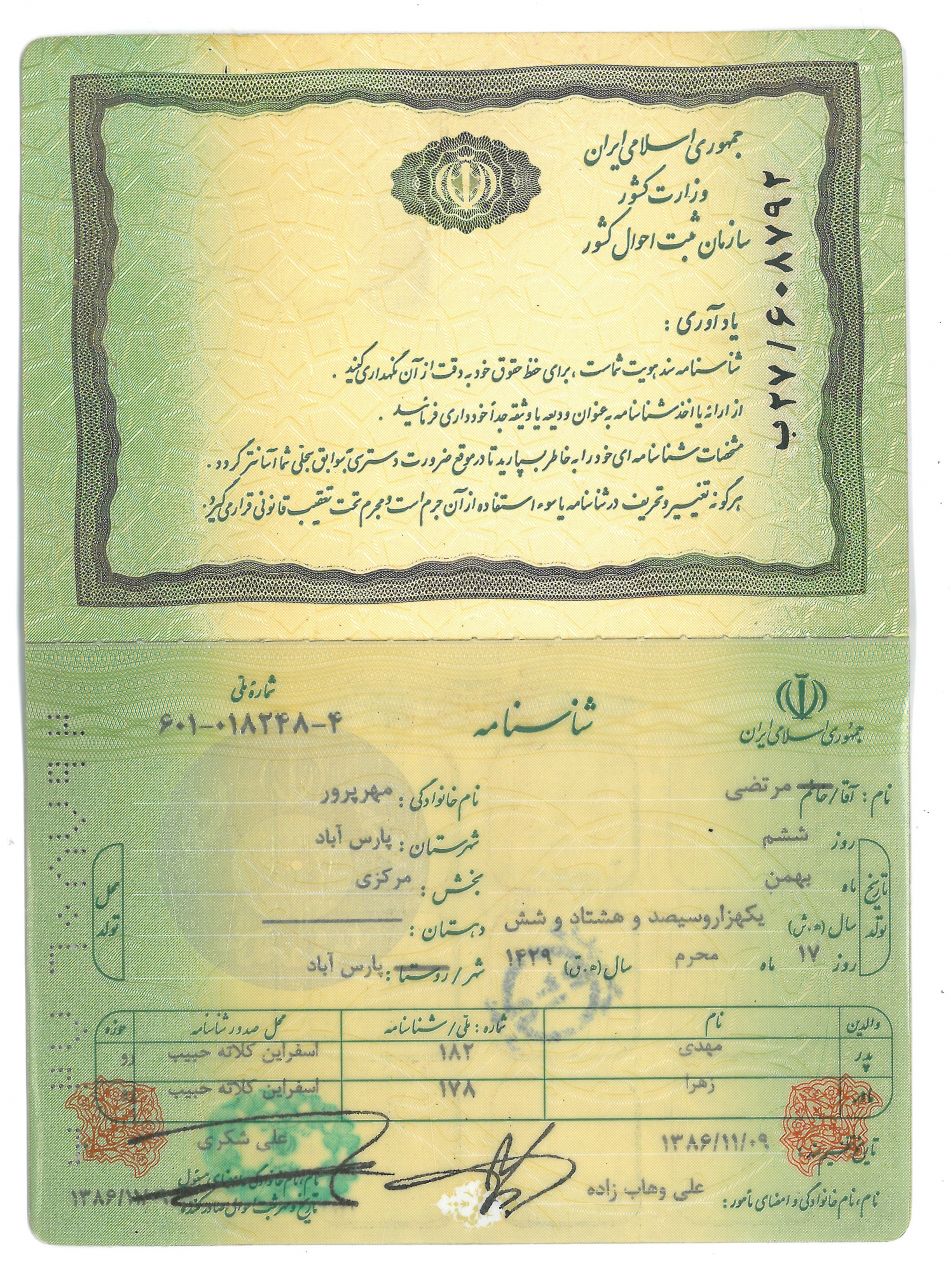 جمهوری اسلامی ایران
وزارت کشور
سازمان ثبت احوال کشور
ب ۲۷/۶۰۸۷۹۲
یادآوری :
شناسنامه سند هویت شماست ، برای حفظ حقوق خود به دقت از آن نگهداری کنید .
از ارائه یا اخذ شناسنامه به عنوان ودیعه یا وثیقه جداً خودداری فرمائید .
مشخصات شناسنامه ای خود را به خاطر بسپارید تا در موقع ضرورت دسترسی به سوابق سجلی شما آسانتر گردد .
هرگونه تغییر و تحریف در شناسنامه یا سوء استفاده از آن جرم است و مجرم تحت تعقیب قانونی قرار می گیرد .
جمهوری اسلامی ایران
شناسنامه
شماره ملی
۶۰۱-۰۱۸۲۴۸-۴
نام : آقا/خانم مرتضی نام خانوادگی : مهرپرور
تاریخ تولد
روز ششم
ماه بهمن
سال (ه.ش) یکهزاروسیصد و هشتاد و شش
روز ۱۷ ماه محرم سال (ه.ق) ۱۴۲۹
محل تولد
شهرستان : پارس آباد
بخش : مرکزی
دهستان :
شهر/روستا : پارس آباد
والدین نام شماره : ملی/شناسنامه محل صدور شناسنامه حوزه
پدر مهدی ۱۸۲ اسفراین کلاته حبیب رو
مادر زهرا ۱۷۸ اسفراین کلاته حبیب رو
تاریخ تنظیم سند : ۱۳۸۶/۱۱/۰۹
علی شکری
نام، نام خانوادگی و امضای مأمور : علی وهاب زاده
نام، نام خانوادگی و امضای مسئول
۱۳۸۶/۱۱